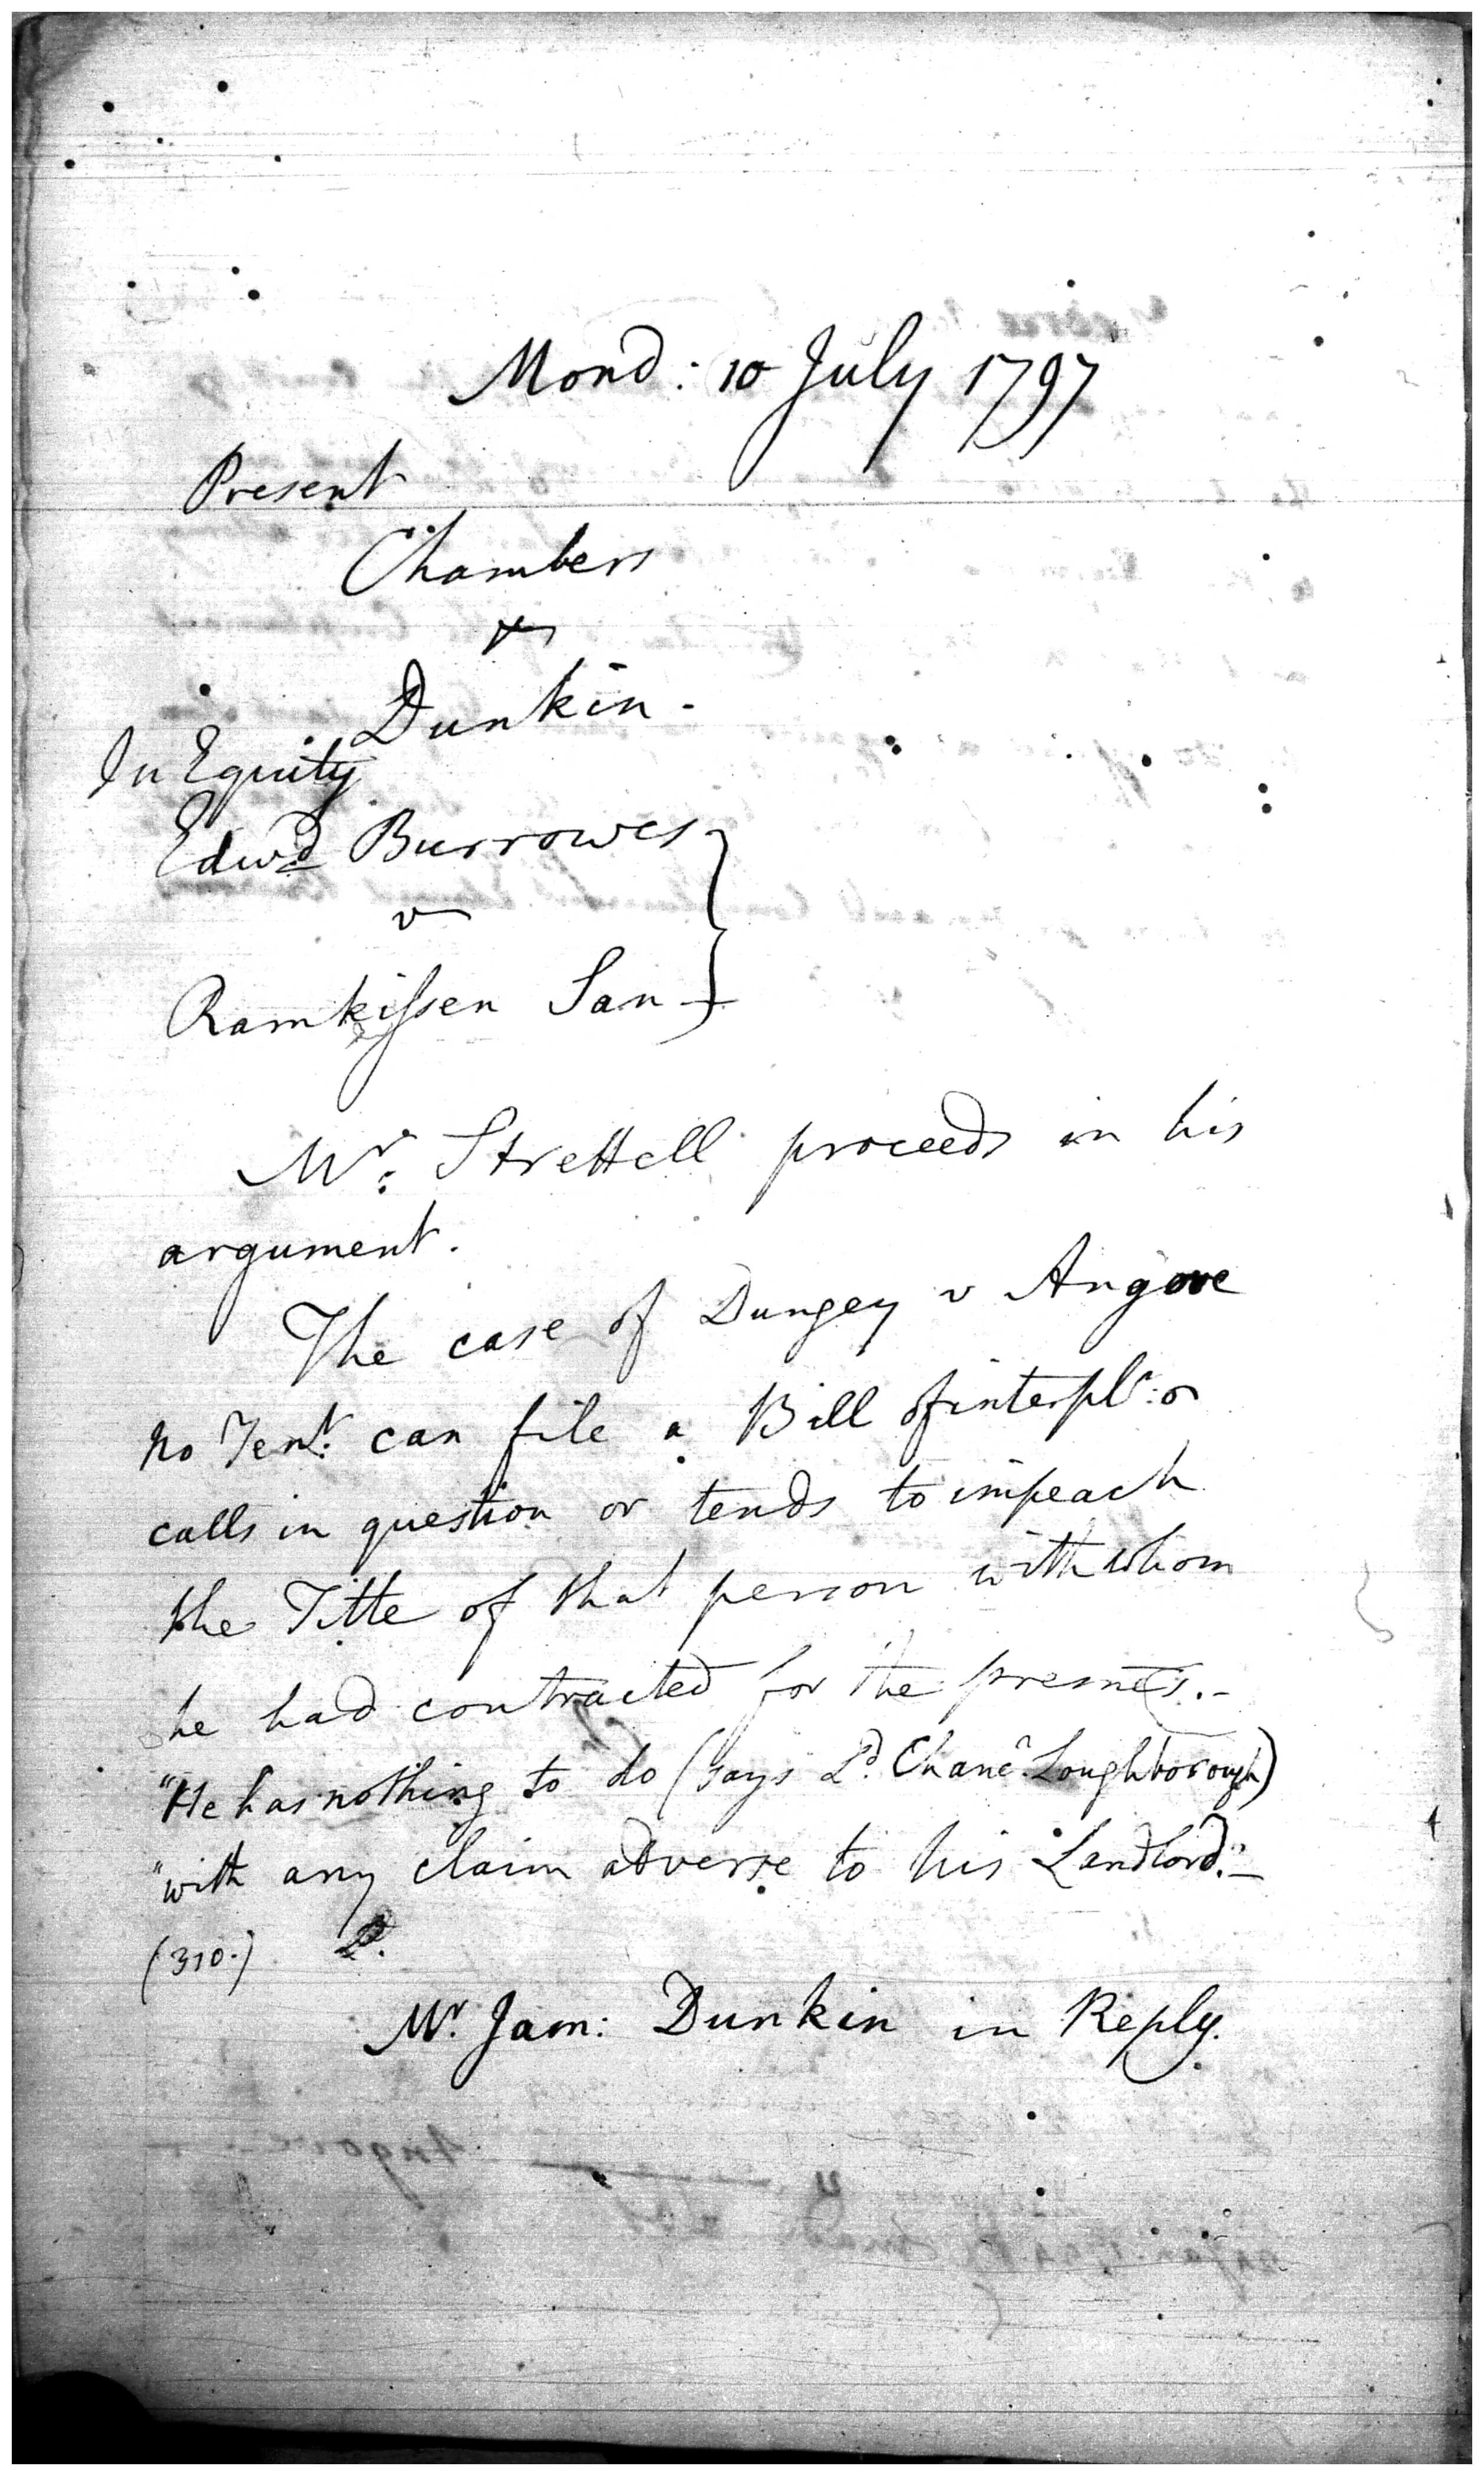 Mond: 10 July 1797
Present
Chambers
&
Dunkin -
In Equity
Edwd Burrowes
v
Ramkissen San
Mr: Strettell proceeds in his
argument.
The case of Dungey v Angove
no Tent: can file a Bill of interplr: or
calls in question or tends to impeach
the Title of that person with whom
he had contracted for the premes. -
"He has nothing to do (says Ld. Chancr. Loughborough)
"with any claim adverse to his Landlord." -
(310.)
Mr. Jam: Dunkin in Reply.